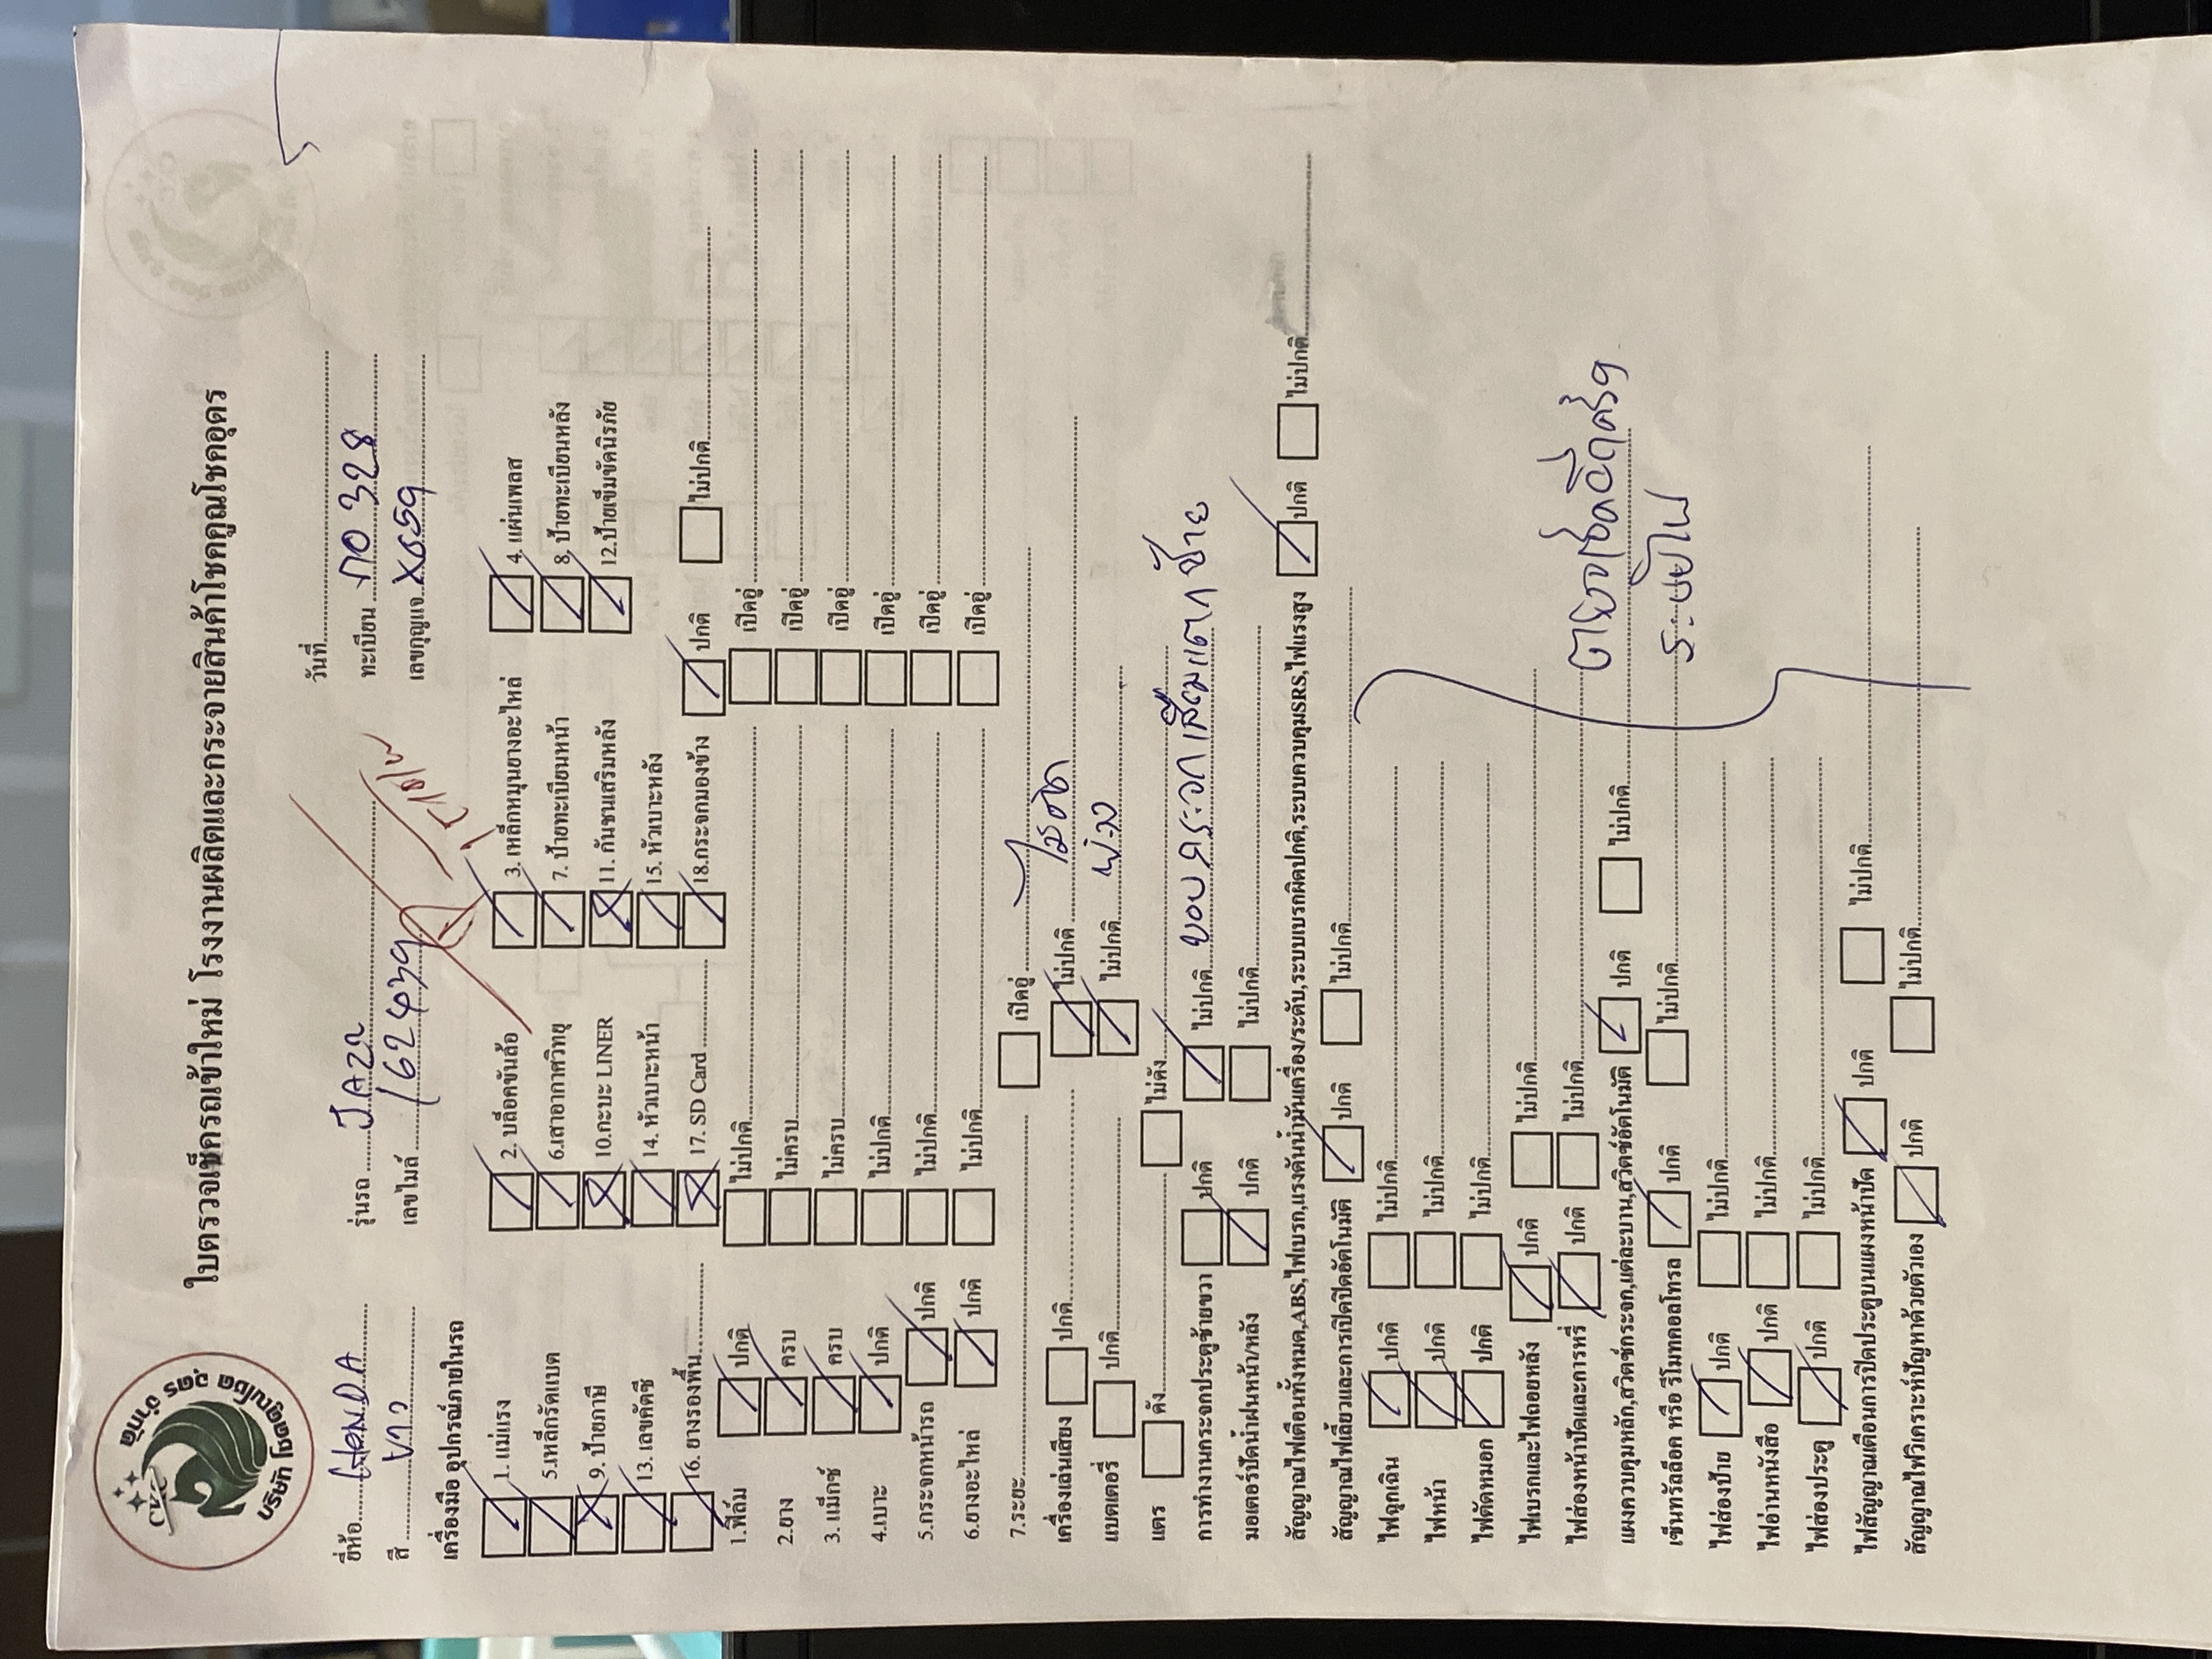 บริษัท โชคคูณโชค อุดร จำกัด
CAC
ใบตรวจเช็ครถเข้าใหม่ โรงงานผลิตและกระจายสินค้าโชคคูณโชคอุดร
วันที่
ยี่ห้อ HONDA รุ่นรถ JAZZ ทะเบียน กอ 328
สี ขาว เลขไมล์ 162439 เลขกุญแจ X659
เครื่องมือ อุปกรณ์ภายในรถ
1. แม่แรง 2. บล็อคขันล้อ 3. เหล็กหมุนยางอะไหล่ 4. แผ่นเพลส
5.เหล็กรัดแบต 6.เสาอากาศวิทยุ 7. ป้ายทะเบียนหน้า 8. ป้ายทะเบียนหลัง
9. ป้ายภาษี 10.กะบะ LINER 11. กันชนเสริมหลัง 12.ป้ายเข็มขัดนิรภัย
13. เลขคัดซี 14. หัวเบาะหน้า 15. หัวเบาะหลัง
16. ยางรองพื้น 17. SD Card 18.กระจกมองข้าง ปกติ ไม่ปกติ
1.ฟิล์ม ปกติ ไม่ปกติ เปิดอู่
2.ยาง ครบ ไม่ครบ เปิดอู่
3. แม็กซ์ ครบ ไม่ครบ เปิดอู่
4.เบาะ ปกติ ไม่ปกติ เปิดอู่
5.กระจกหน้ารถ ปกติ ไม่ปกติ เปิดอู่
6.ยางอะไหล่ ปกติ ไม่ปกติ เปิดอู่
7.ระยะ เปิดอู่
เครื่องเล่นเสียง ปกติ ไม่ปกติ ไม่ติด
แบตเตอรี่ ปกติ ไม่ปกติ พ่วง
แตร ดัง ไม่ดัง
การทำงานกระจกประตูซ้ายขวา ปกติ ไม่ปกติ ขอบกระจกเสื่อมแตก ซ้าย
มอเตอร์ปัดน้ำฝนหน้า/หลัง ปกติ ไม่ปกติ
สัญญาณไฟเตือนทั้งหมด,ABS,ไฟเบรก,แรงดันน้ำมันเครื่อง/ระดับ,ระบบเบรกผิดปกติ,ระบบควบคุมSRS,ไฟแรงสูง ปกติ ไม่ปกติ
สัญญาณไฟเลี้ยวและการเปิดปิดอัตโนมัติ ปกติ ไม่ปกติ
ไฟฉุกเฉิน ปกติ ไม่ปกติ
ไฟหน้า ปกติ ไม่ปกติ
ไฟตัดหมอก ปกติ ไม่ปกติ
ไฟเบรกและไฟถอยหลัง ปกติ ไม่ปกติ
ไฟส่องหน้าปัดและการหรี่ ปกติ ไม่ปกติ
แผงควบคุมหลัก,สวิตซ์กระจก,แต่ละบาน,สวิตซ์อัตโนมัติ ปกติ ไม่ปกติ
เซ็นทรัลล็อค หรือ รีโมทคอลโทรล ปกติ ไม่ปกติ
ระบบไฟ
ไฟส่องป้าย ปกติ ไม่ปกติ
ไฟอ่านหนังสือ ปกติ ไม่ปกติ
ไฟส่องประตู ปกติ ไม่ปกติ
ไฟสัญญาณเตือนการปิดประตูบนแผงหน้าปัด ปกติ ไม่ปกติ
สัญญาณไฟวิเคราะห์ปัญหาด้วยตัวเอง ปกติ ไม่ปกติ